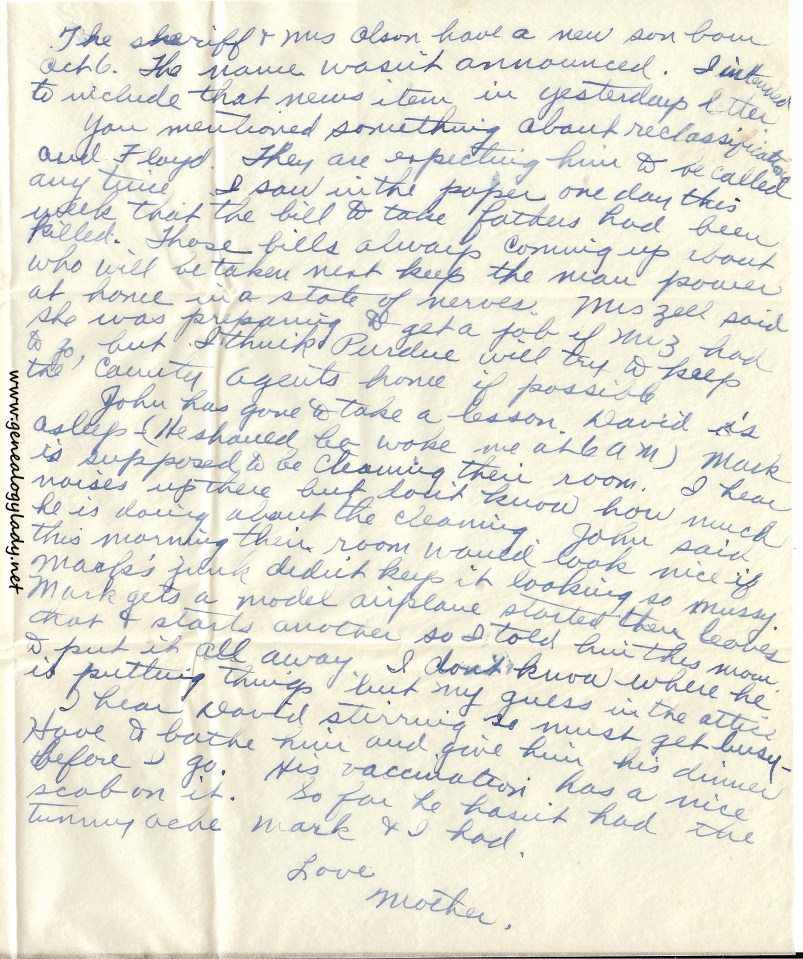 The sheriff & Mrs Olson have a new son born
Oct 6. The name wasn't announced. I intended
to include that news item in yesterdays letter
You mentioned something about reclassification
and Floyd. They are expecting him to be called
any time I saw in the paper one day this
week that the bill to take fathers had been
killed. Those bills always coming up about
who will be taken next keep the man power
at home in a state of nerves. Mrs Zell said
she was preparing to get a job if Mr Z had
to go, but I think Purdue will try to keep
the County Agents home if possible
John has gone to take a lesson. David is
asleep - (He should be woke me at 6 AM) Mark
is supposed to be cleaning their room. I hear
noises up there but don't know how much
he is doing about the cleaning. John said
this morning their room would look nice if
Mark's junk didn't keep it looking so mussy.
Mark gets a model airplane started then leaves
that & starts another so I told him this morn.
to put it all away. I don't know where he
is putting things but my guess in the attic
I hear David stirring so must get busy-
Have to bathe him and give him his dinner
before I go. His vaccination has a nice
scab on it. So far he hasn't had the
tummy ache Mark & I had.
Love
Mother.
www.genealogylady.net